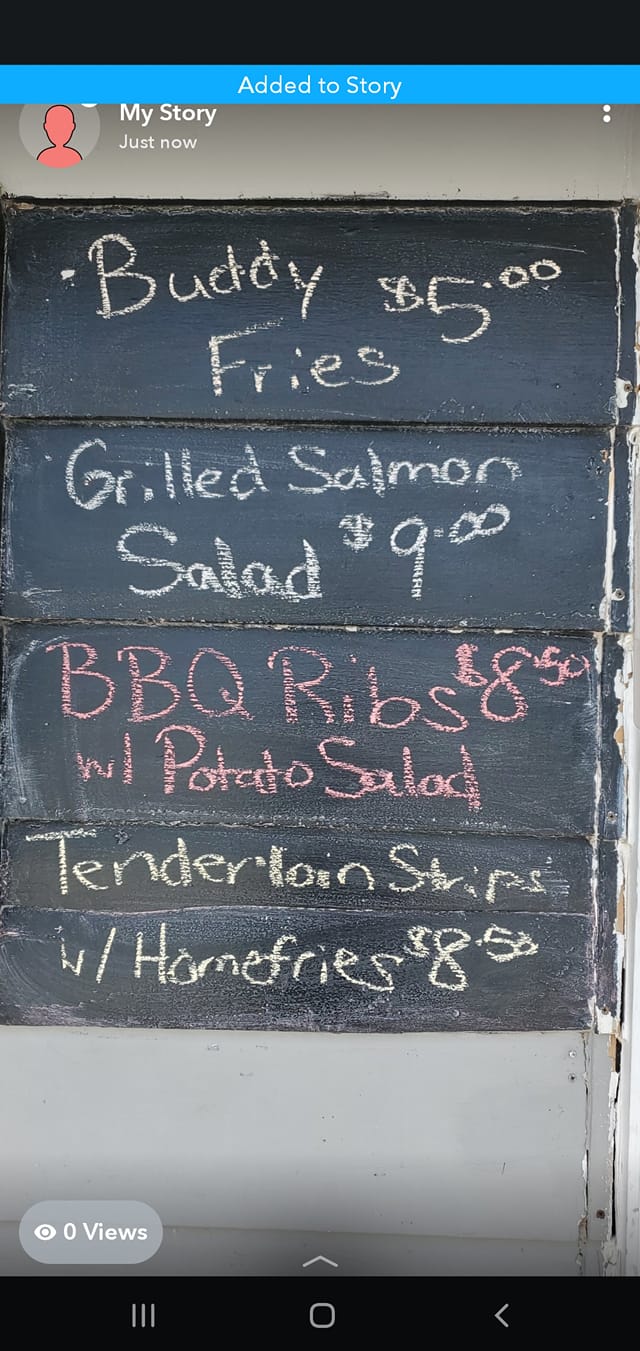 Added to Story
My Story
Just now
Buddy $5.00
Fries
Grilled Salmon
Salad $9.00
BBQ Ribs $8.50
w/ Potato Salad
Tenderloin Strips
w/ Homefries $8.50
0 Views